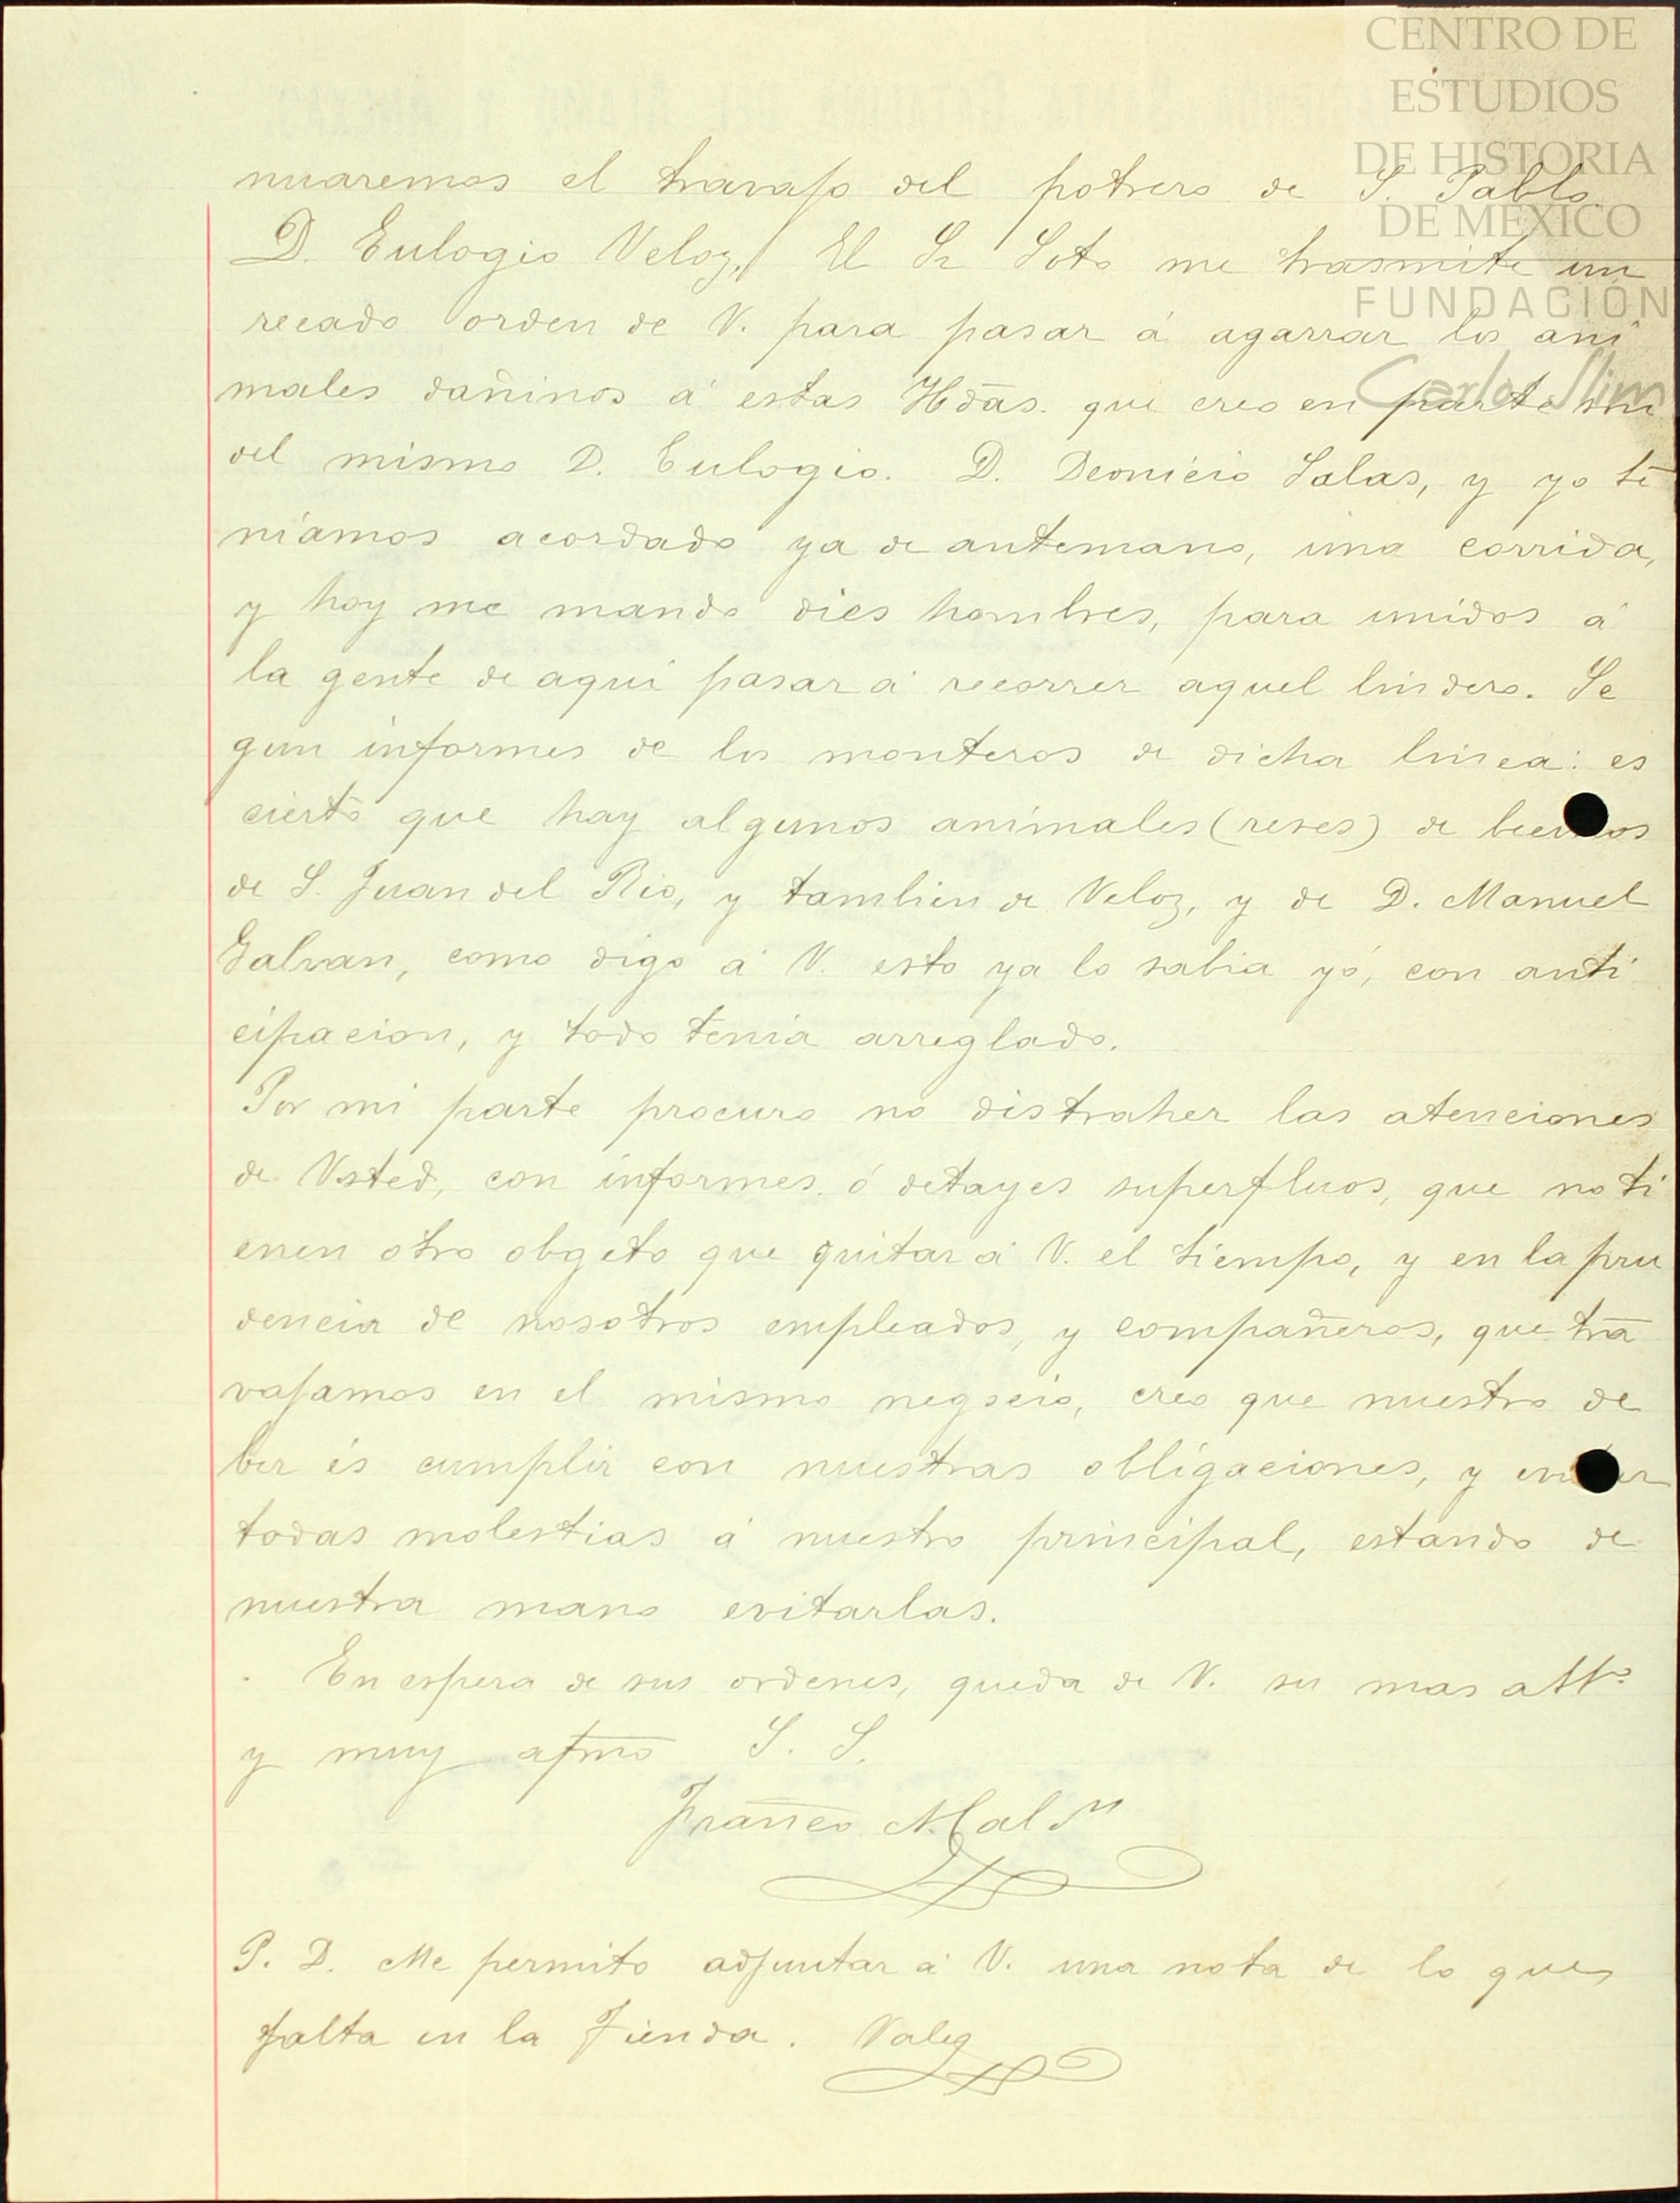 CENTRO DE
ESTUDIOS
DE HISTORIA
DE MEXICO
FUNDACIÓN
Carlos Slim
nuaremos el travajo del potrero de S. Pablo.
D. Eulogio Veloz,/ El Sr Soto me trasmite un
recado orden de V. para pasar á agarrar los ani
males dañinos á estas Hdas. que creo en parte son
del mismo D. Eulogio. D. Deonicio Salas, y yo te
niamos acordado ya de antemano, una corrida,
y hoy me mando dies hombres, para unidos á
la gente de aqui pasar á recorrer aquel lindero. Se
gun informes de los monteros de dicha linea: es
cierto que hay algunos animales (reses) de
de S. Juan del Rio, y tambien de Veloz, y de D. Manuel
Galvan, como digo á V. esto ya lo sabia yó, con anti
cipacion, y todo tenia arreglado.
Por mi parte procuro no distraher las atenciones
de Usted, con informes ó detayes superfluos, que no ti
enen otro obgeto que quitar á V. el tiempo, y en la pru
dencia de nosotros empleados, y compañeros, que tra
vajamos en el mismo negocio, creo que nuestro de
ber és cumplir con nuestras obligaciones, y
todas molestias á nuestro principal, estando de
nuestra mano evitarlas.
En espera de sus ordenes, queda de V. su mas atto
y muy afmo S. S.
Franco
P. D. Me permito adjuntar á V. una nota de lo que
falta en la Tienda. Vale